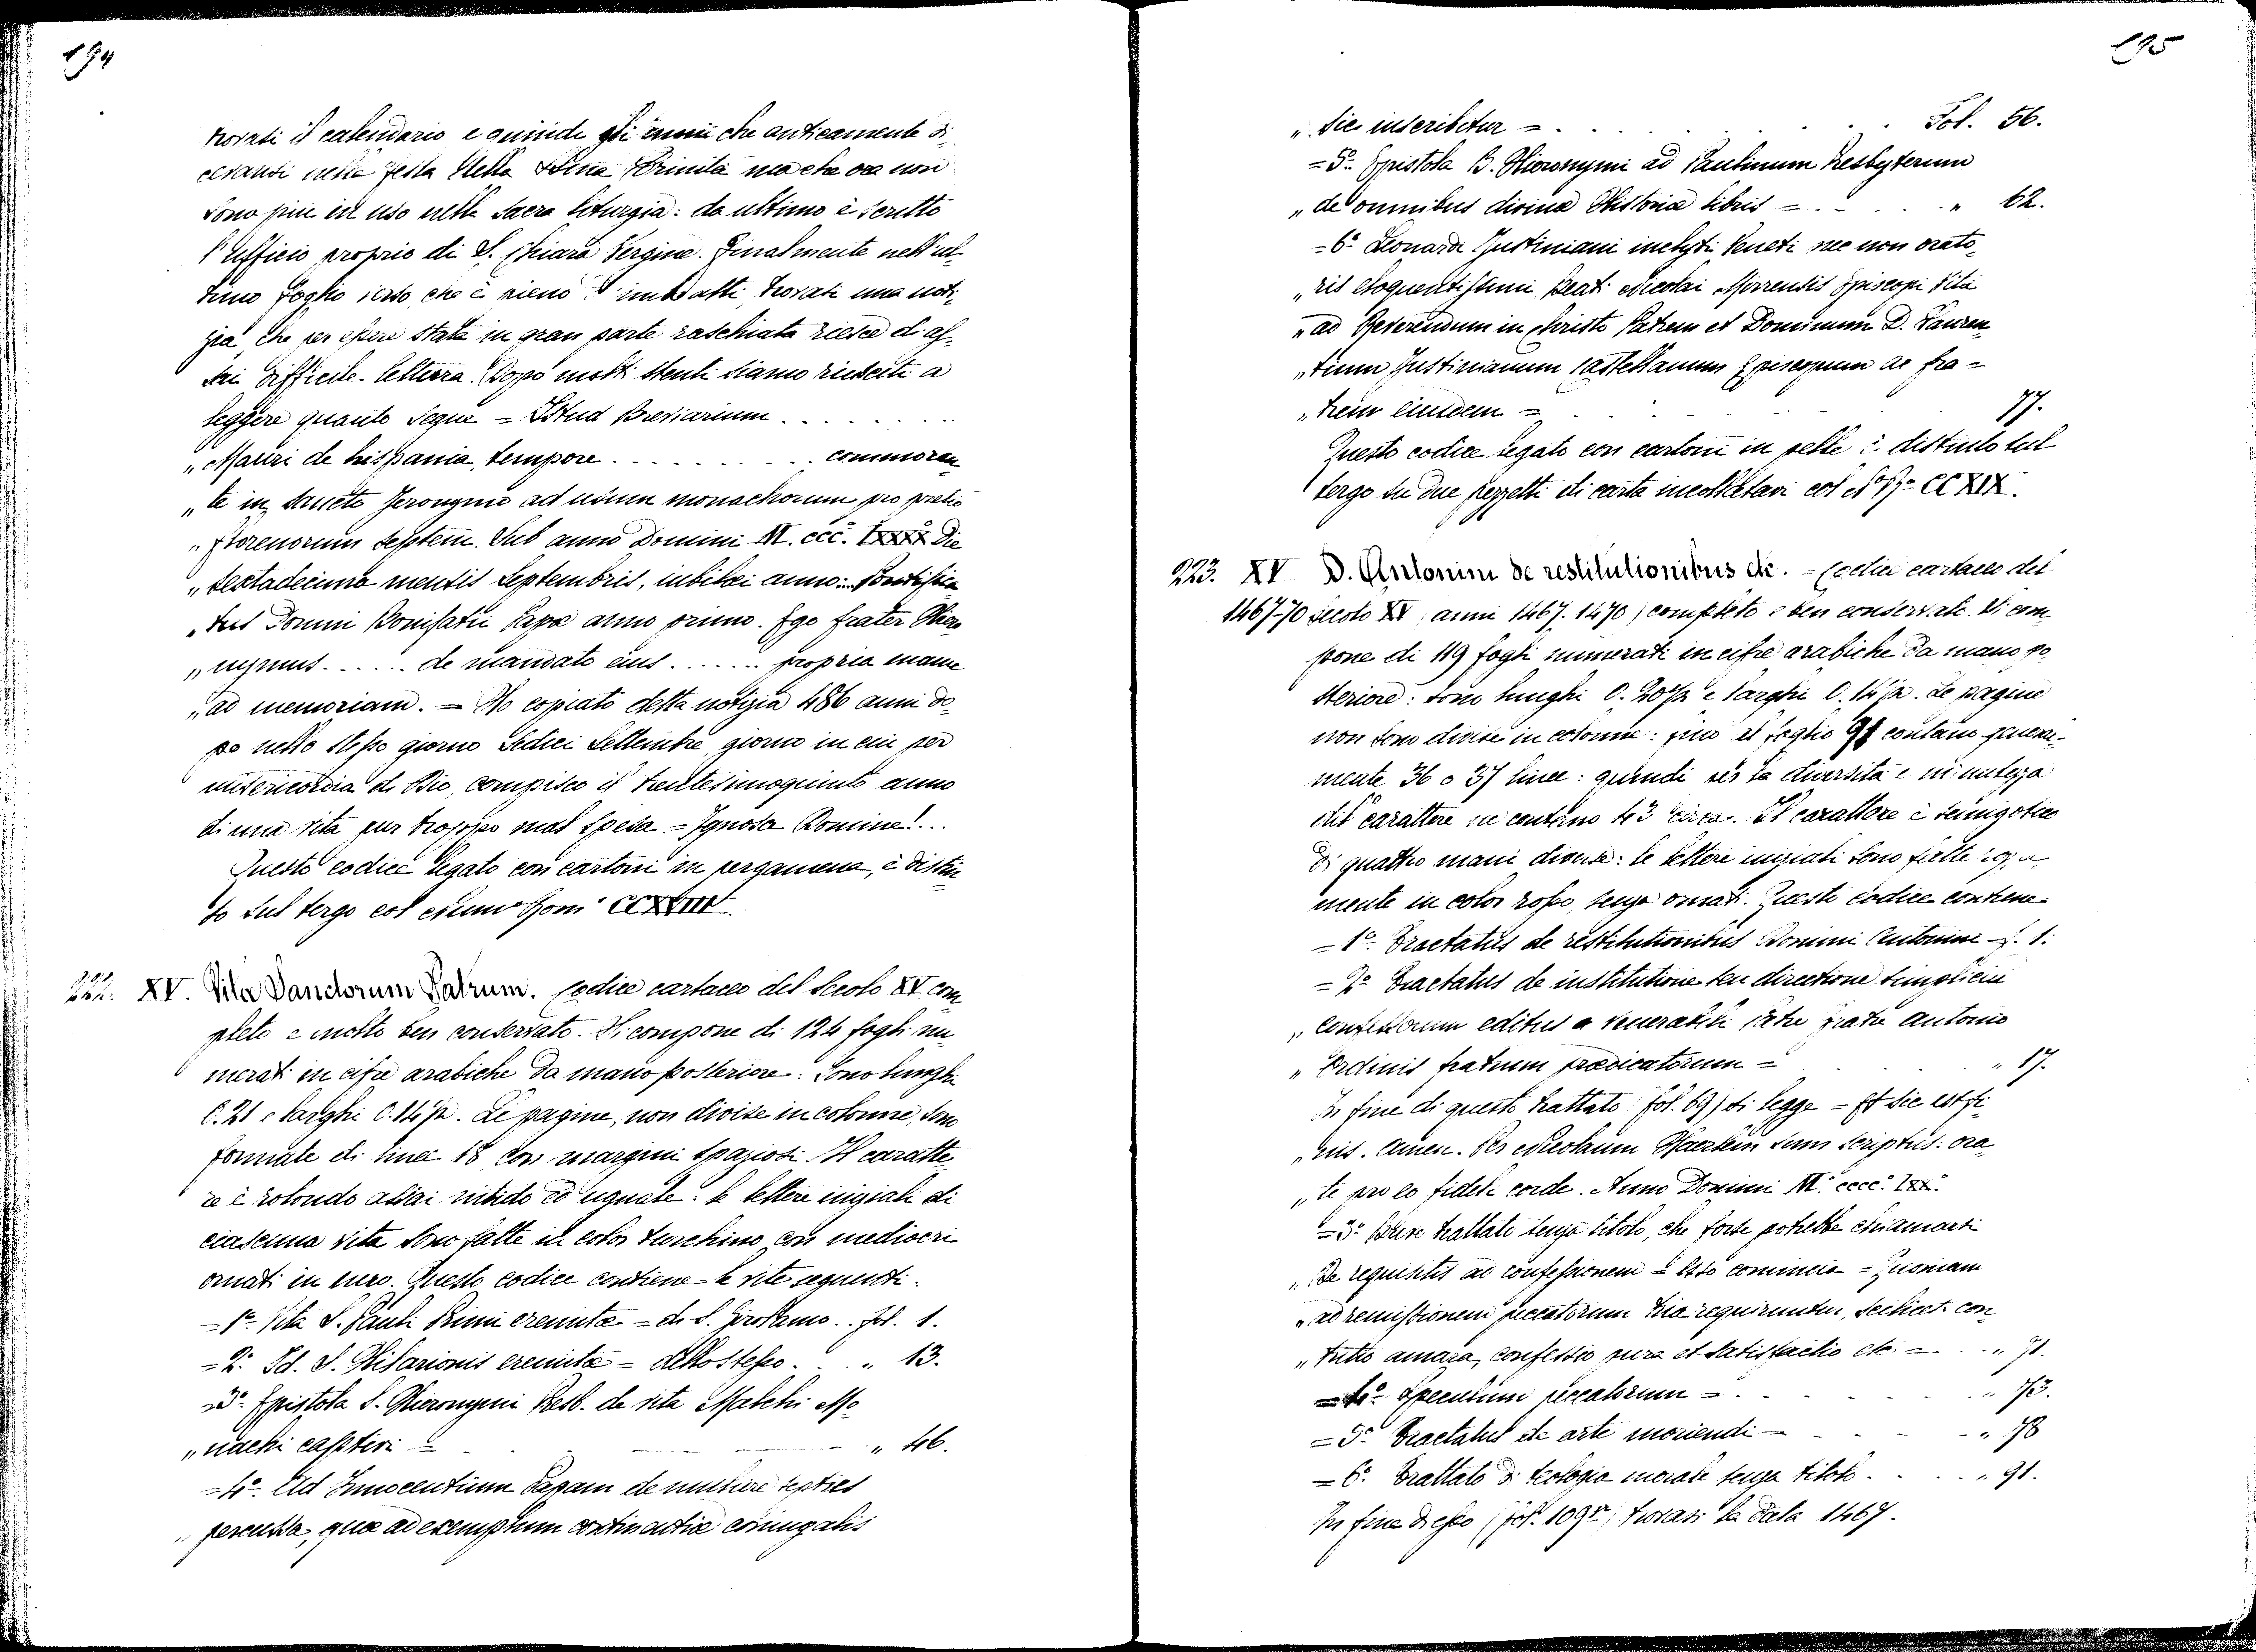 194
trovasi il calendario e quindi gli inni che anticamente di
cevansi nella festa della SSma Trinità ma che ora non
sono più in uso nella sacra liturgia: da ultimo è scritto
l'ufficio proprio di S. Chiara Vergine. Finalmente nell'ul-
timo foglio verso, che è pieno d'imbratti, trovasi una noti-
zia, che per essere stata in gran parte raschiata riesce di as-
sai difficile lettura. Dopo molti stenti siamo riusciti a
leggere quanto segue = Istud Breviarium . . . . . . . .
„ Mauri de hispania, tempore . . . . . . . . . . commoran
„ te in Sancto Jeronymo ad usum monachorum pro pretio
„ florenorum septem. Sub anno Domini M. ccc. lxxxx Die
„ sextadecima mensis Septembris, anno Pontifica
„ tus Domni Bonifatii Papæ anno primo. Ego frater Hiero
„ nymus . . . . . de mandato eius . . . . . . propria manu
„ ad memoriam. = Ho copiato detta notizia 486 anni do-
po nello stesso giorno sedici Settembre, giorno in cui per
misericordia di Dio, compisco il trentesimoquinto anno
di una vita pur troppo mal spesa = Ignosce Domine!...
Questo codice legato con cartoni in pergamena, è distin-
to sul tergo col num° Rom° CCXVIII.
222. XV. Vita Sanctorum Patrum. Codice cartaceo del Secolo XV com
pleto e molto ben conservato. Si compone di 124 fogli nu
merati in cifre arabiche da mano posteriore. Sono lunghi
C. 21 e larghi C. 14 ½. Le pagine, non divise in colonne, sono
formate di linee 18 con margini spaziosi. Il caratte-
re è rotondo assai nitido ed uguale: le lettere iniziali di
ciascuna vita sono fatte in color turchino con mediocri
ornati in nero. Questo codice contiene le vite seguenti.
= 1° Vita S. Pauli Primi eremitæ = di S. Girolamo. . fol. 1.
= 2° Id. S. Hilarionis eremitæ = dello stesso . . . „ 13.
= 3° Epistola S. Hieronymi Presb. de vita Malchi Mo
„ nachi captivi = „ 46.
= 4° Ad Innocentium Papam de muliere septies
„ percussa, quæ ad exemplum continentiæ coniugalis
195
„ sic inscribitur = . . . . . . Fol. 56.
= 5° Epistola B. Hieronymi ad Paulinum Presbyterum
„ de omnibus divinæ Historiæ libris = . . . . „ 62.
= 6° Leonardi Justiniani inclyti Veneti nec non orato-
„ ris eloquentissimi, Beati Nicolai Mirrensis Episcopi Vita
„ ad Reverendum in Christo Patrem et Dominum D. Lauren
„ tium Justinianum Castellanum Episcopum ac fra =
„ trem eiusdem = . . . . . 77.
Questo codice legato con cartoni in pelle è distinto sul
tergo su due pezzetti di carta incollatavi col N° R° CCXIX.
223. XV D. Antonini de restitutionibus etc. = Codice cartaceo del
1467-70 secolo XV (anni 1467. 1470) completo e ben conservato. Si com
pone di 119 fogli numerati in cifre arabiche da mano po
steriore: sono lunghi C. 20 ½ e larghi C. 14 ½. Le pagine
non sono divise in colonne: fino al foglio 91 contano general-
mente 36 o 37 linee: quindi per la diversità e minutezza
del carattere ne contano 43 circa. Il carattere è semigotico
di quattro mani diverse: le lettere iniziali sono fatte rozza-
mente in color rosso, senza ornati. Questo codice contiene.
= 1° Tractatus de restitutionibus Domini Antonini = f. 1.
= 2° Tractatus de institutione seu directione simplicium
„ Confessorum editus a Venerabili Patre fratre Antonio
„ Ordinis fratrum prædicatorum = „ 17.
In fine di questo trattato (fol. 69) si legge = Et sic est fi-
„ nis. Amen. Per Nicolaum sum scriptus: ora
„ te pro eo fideli corde. Anno Domini M° cccc° lxx°
= 3° Breve trattato senza titolo, che forse potrebbe chiamarsi
„ De requisitis ad confessionem = Esso comincia = Quoniam
„ ad remissionem peccatorum tria requiruntur, scilicet con
„ tritio amara, confessio pura et satisfactio etc. = . . . „ 71.
= 4° Speculum peccatorum = . . . . . „ 73.
= 5° Tractatus de arte moriendi = . . . . „ 78
= 6° Trattato di teologia morale senza titolo . . . . „ 91.
In fine di esso (fol. 109 v°) trovasi la data 1467.